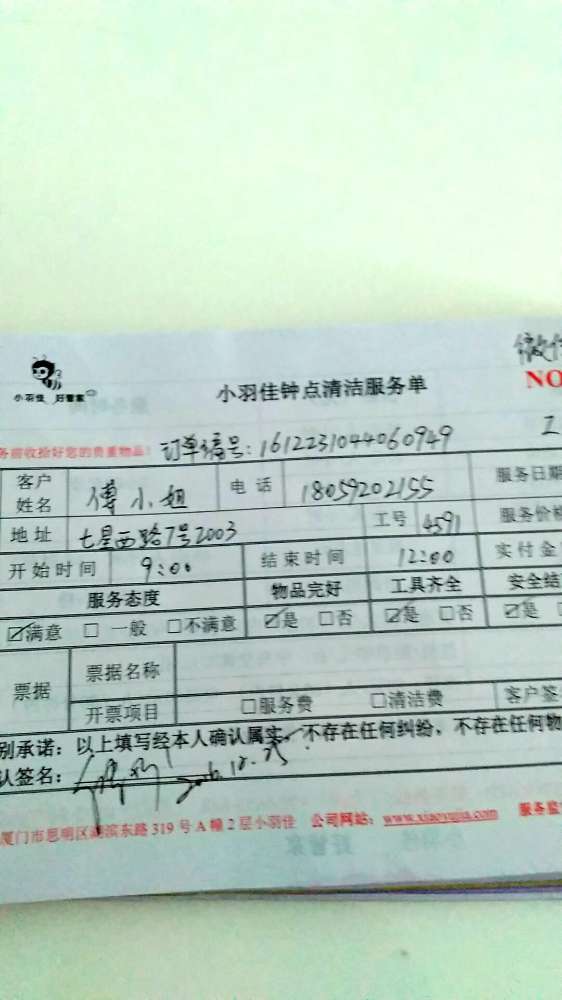 微信
小羽佳 好管家
小羽佳钟点清洁服务单
NO
务前收拾好您的贵重物品! 订单编号:1612231044060949
客户姓名 傅小姐 电话 18059202155 服务日期
地址 七星西路7号2003 工号 4591 服务价格
开始时间 9:00 结束时间 12:00 实付金
服务态度 物品完好 工具齐全 安全结
☑满意 □一般 □不满意 ☑是 □否 ☑是 □否 ☑是
票据 票据名称
开票项目 □服务费 □清洁费 客户签
别承诺:以上填写经本人确认属实,不存在任何纠纷,不存在任何物
认签名:
厦门市思明区湖滨东路319号A幢2层小羽佳 公司网站:www.xiaoyujia.com 服务监